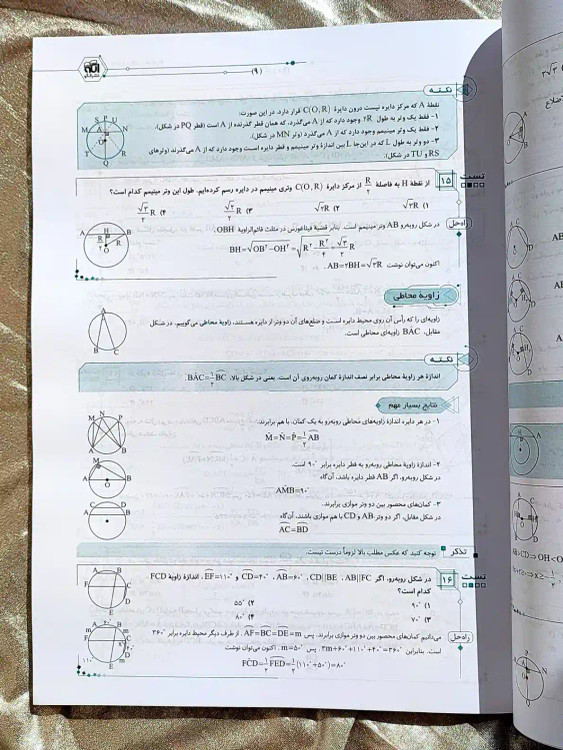 (۹)
نکته
نقطهٔ A که مرکز دایره نیست درون دایرهٔ C(O, R) قرار دارد. در این صورت:
۱- فقط یک وتر به طول ۲R وجود دارد که از A می‌گذرد، که همان قطر گذرنده از A است (قطر PQ در شکل).
۲- فقط یک وتر مینیمم وجود دارد که از A می‌گذرد (وتر MN در شکل).
۳- دو وتر به طول L که در این‌جا L بین اندازهٔ وتر مینیمم و قطر دایره است وجود دارد که از A می‌گذرند (وترهای
RS و TU در شکل).
تست ۱۵
از نقطهٔ H به فاصلهٔ R/۲ از مرکز دایرهٔ C(O, R) وتری مینیمم در دایره رسم کرده‌ایم. طول این وتر مینیمم کدام است؟
۱) √۳R ۲) ۲√۳R ۳) √۳/۲ R ۴) √۳/۲ R
راه‌حل
در شکل روبه‌رو AB وتر مینیمم است. بنابر قضیهٔ فیثاغورس در مثلث قائم‌الزاویهٔ OBH،
BH=√(OB²-OH²)=√(R²-R²/۴)=√۳/۲ R
اکنون می‌توان نوشت AB=۲BH=√۳R.
زاویهٔ محاطی
زاویه‌ای را که رأس آن روی محیط دایره است و ضلع‌های آن دو وتر از دایره هستند، زاویهٔ محاطی می‌گوییم. در شکل
مقابل، BAC زاویه‌ای محاطی است.
نکته
اندازهٔ هر زاویهٔ محاطی برابر نصف اندازهٔ کمان روبه‌روی آن است. یعنی در شکل بالا، BÂC=۱/۲ BC.
نتایج بسیار مهم
۱- در هر دایره اندازهٔ زاویه‌های محاطی روبه‌رو به یک کمان، با هم برابرند:
M̂=N̂=P̂=۱/۲ AB
۲- اندازهٔ زاویهٔ محاطی روبه‌رو به قطر دایره برابر ۹۰° است.
در شکل روبه‌رو، اگر AB قطر دایره باشد، آن‌گاه
AM̂B=۹۰°
۳- کمان‌های محصور بین دو وتر موازی برابرند.
در شکل مقابل، اگر دو وتر AB و CD با هم موازی باشند، آن‌گاه
AC=BD
تذکر
توجه کنید که عکس مطلب بالا لزوماً درست نیست.
تست ۱۶
در شکل روبه‌رو، اگر AB||FC، CD||BE، AB=۶۰°، CD=۴۰° و EF=۱۱۰°، اندازهٔ زاویهٔ FCD
کدام است؟
۱) ۹۰° ۲) ۵۵°
۳) ۷۰° ۴) ۸۰°
راه‌حل
می‌دانیم کمان‌های محصور بین دو وتر موازی برابرند. پس AF=BC=DE=m. از طرف دیگر محیط دایره برابر ۳۶۰°
است. بنابراین ۳m+۶۰°+۱۱۰°+۴۰°=۳۶۰°. پس m=۵۰°. اکنون می‌توان نوشت
FĈD=۱/۲ FED=۱/۲(۱۱۰°+۵۰°)=۸۰°